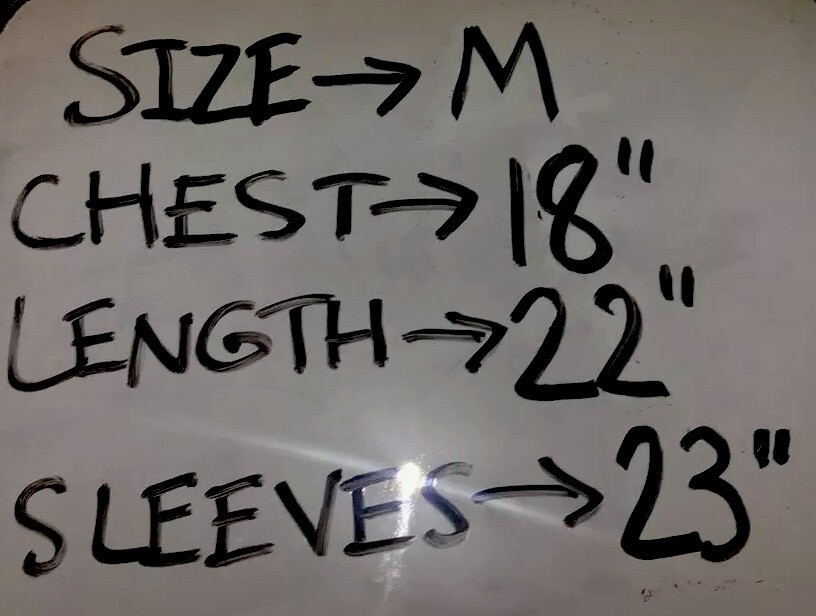 SIZE → M
CHEST → 18"
LENGTH → 22"
SLEEVES → 23"